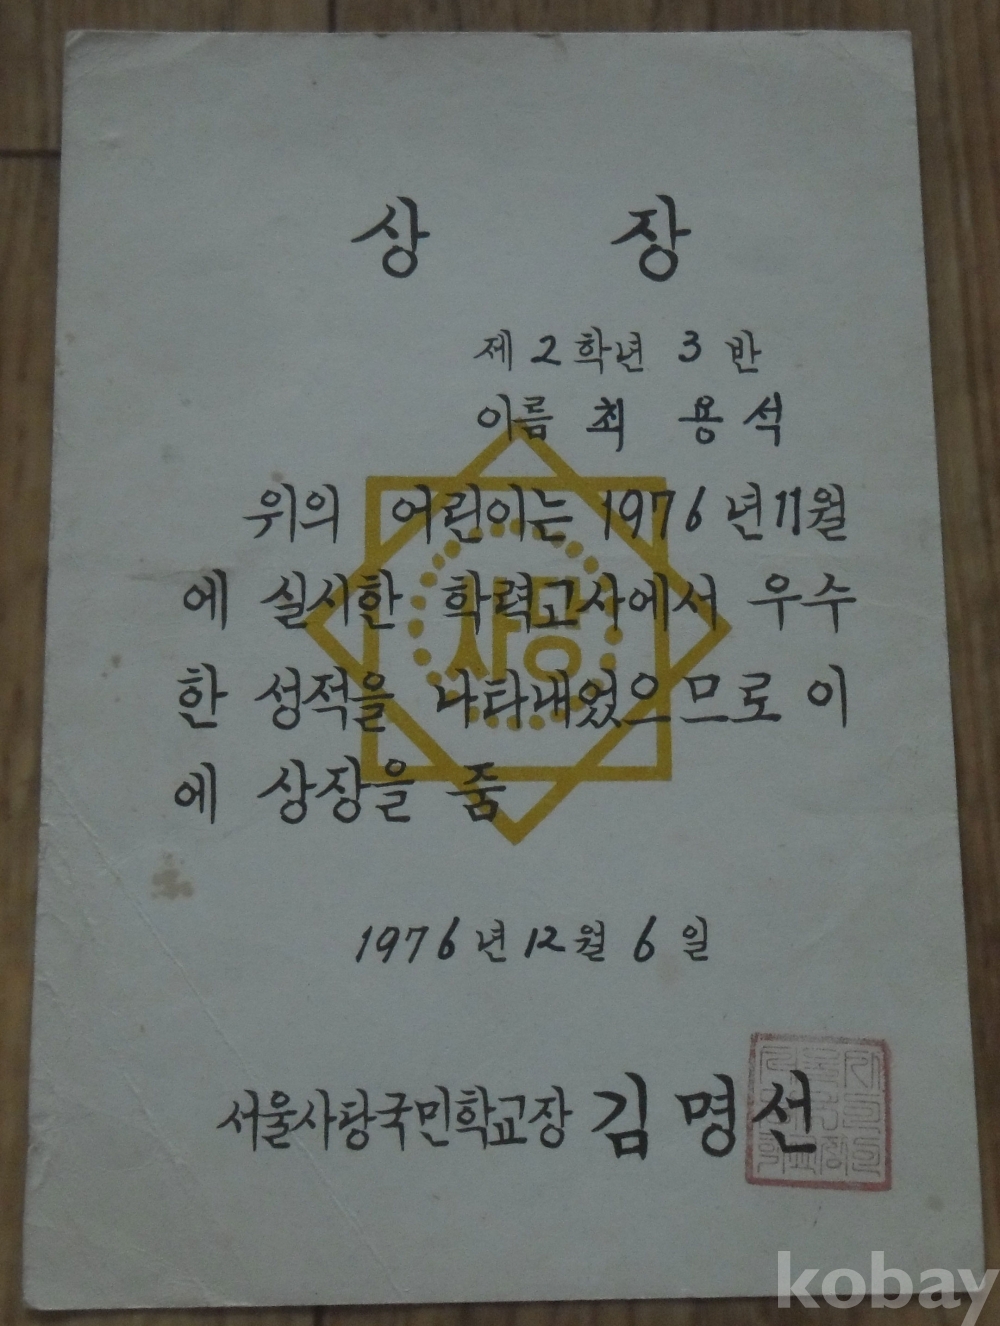 상 장
제 2 학년 3 반
이름 최 용 석
위의 어린이는 1976 년 11월
에 실시한 학력고사에서 우수
한 성적을 나타내었으므로 이
에 상장을 줌
1976 년 12 월 6 일
서울사당국민학교장 김 명 선
사당
kobay